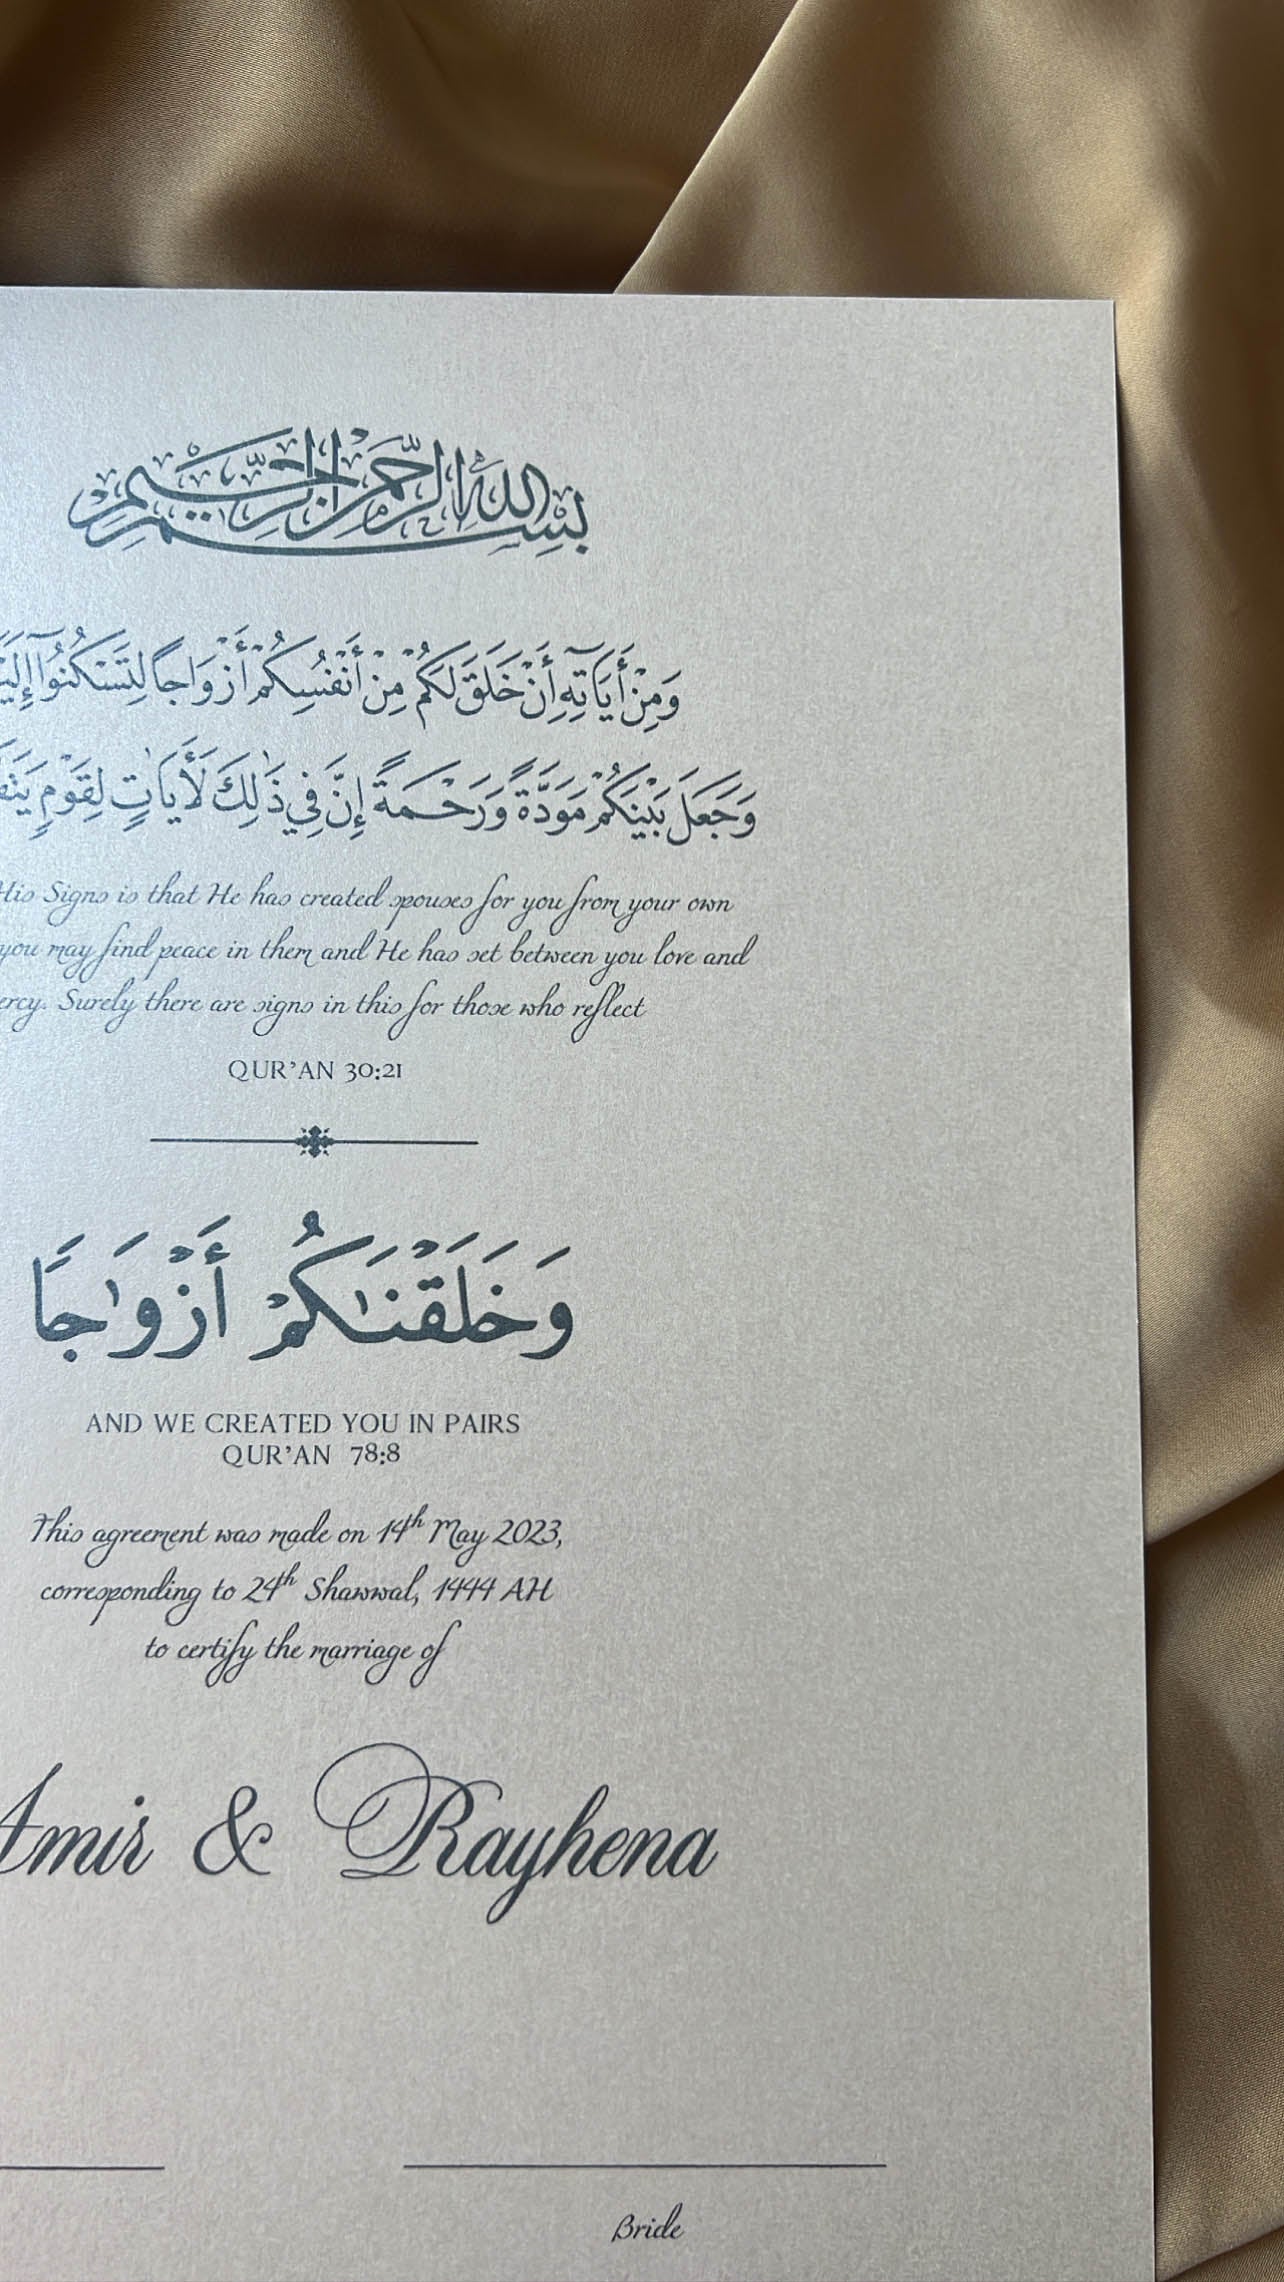 بِسْمِ اللهِ الرَّحْمٰنِ الرَّحِيْمِ
وَمِنْ أَيَاتِهِ أَنْ خَلَقَ لَكُمْ مِنْ أَنْفُسِكُمْ أَزْوَاجاً لِتَسْكُنُوٓا
وَجَعَلَ بَيْنَكُمْ مَوَدَّةً وَرَحْمَةً إِنَّ فِي ذَٰلِكَ لَأَيَاتٍ لِقَوْمٍ
His Signs is that He has created spouses for you from your own
you may find peace in them and He has set between you love and
ercy. Surely there are signs in this for those who reflect
QUR'AN 30:21
وَخَلَقْنَٰكُمْ أَزْوَٰجًا
AND WE CREATED YOU IN PAIRS
QUR'AN 78:8
This agreement was made on 14th May 2023,
corresponding to 24th Shawwal, 1444 AH
to certify the marriage of
Amir & Rayhena
Bride